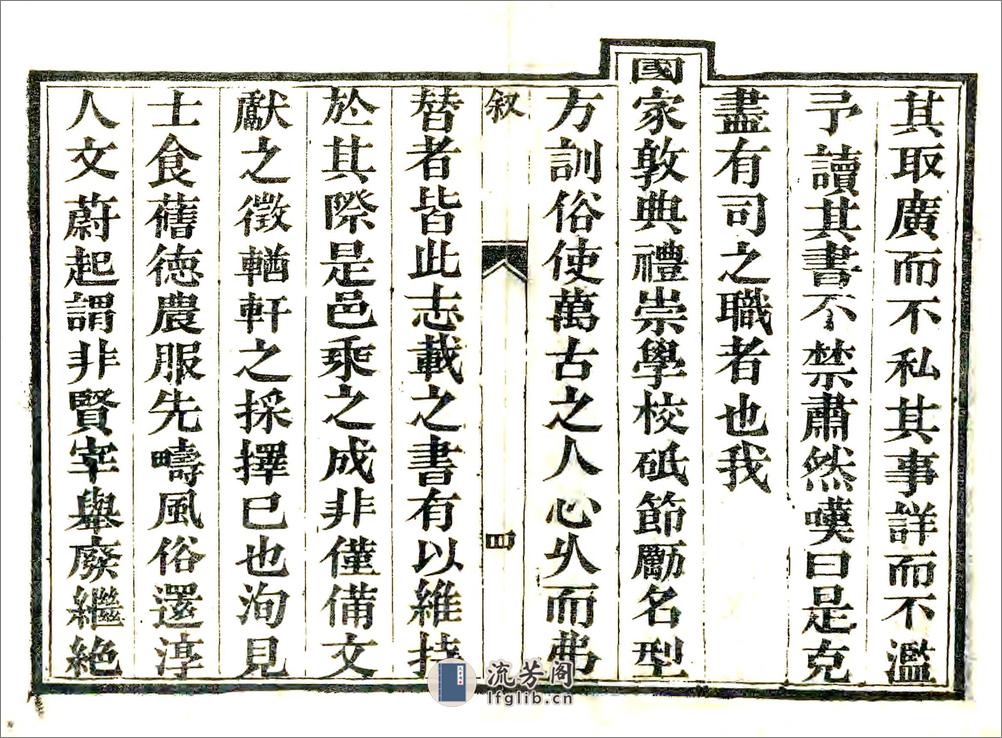 其取廣而不私其事詳而不濫
予讀其書不禁肅然嘆曰是克
盡有司之職者也我
國家敦典禮崇學校砥節勵名型
方訓俗使萬古之人心乆而弗
叙
四
替者皆此志載之書有以維持
於其際是邑乘之成非僅備文
獻之徵輶軒之採擇已也洵見
士食舊德農服先疇風俗還淳
人文蔚起謂非賢宰舉廢繼絶
流芳阁
lfglib.cn